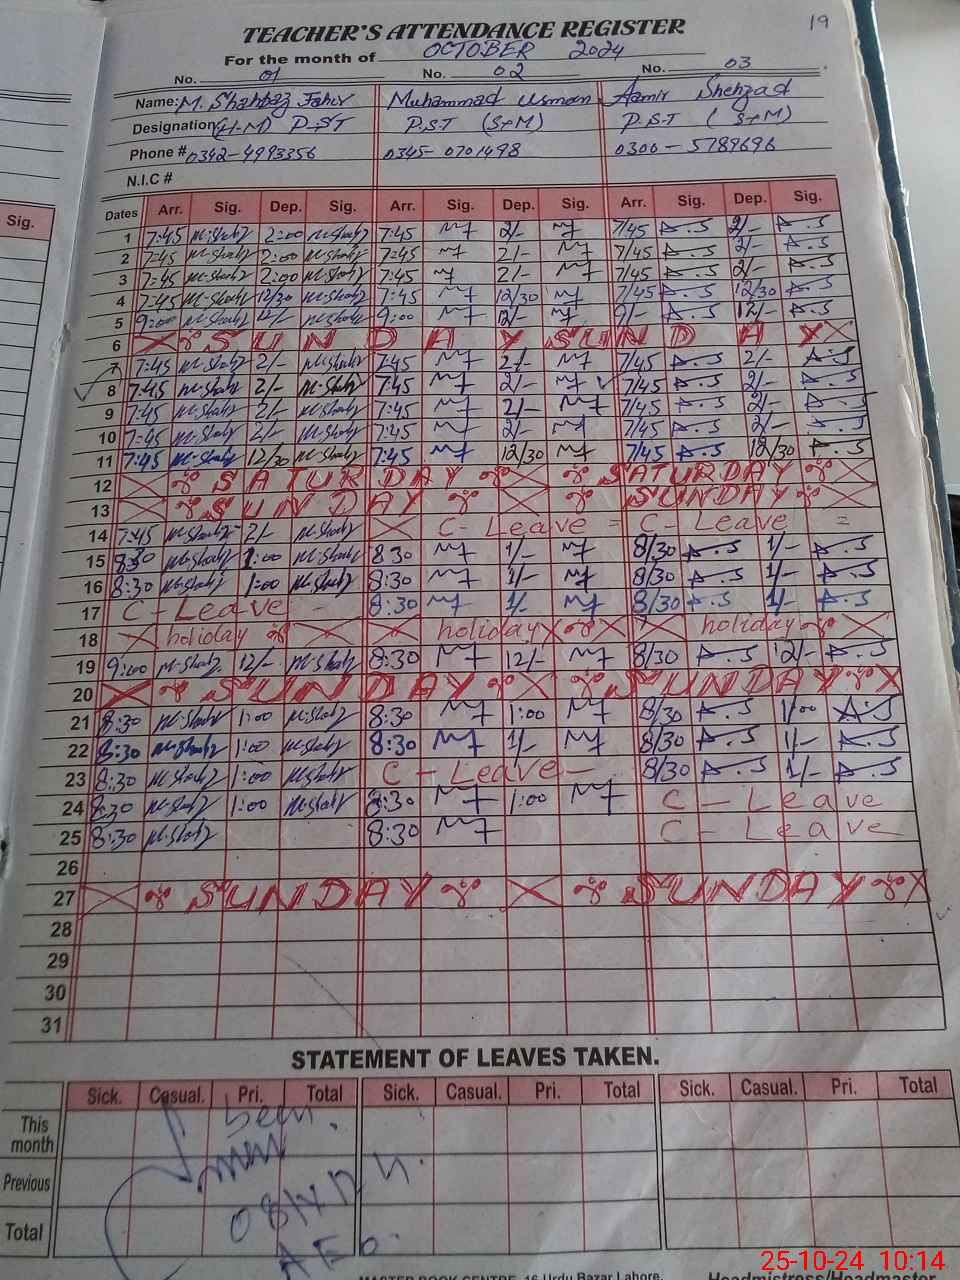 19
TEACHER'S ATTENDANCE REGISTER
For the month of OCTOBER 2024
No. 01 No. 02 No. 03
Name: M. Shahbaz Tahir Muhammad Usman Aamir Shehzad
Designation (H-M) P-ST P.S.T (S+M) P.S.T (S+M)
Phone # 0342-4993356 0345-0701498 0300-5789696
N.I.C #
Sig. Dates Arr. Sig. Dep. Sig. Arr. Sig. Dep. Sig. Arr. Sig. Dep. Sig.
1 7:45 M-Shahz 2:00 M-Shahz 7:45 2/- 7/45 A.S 2/- A.S
2 7:45 M-Shahz 2:00 M-Shahz 7:45 2/- 7/45 A.S 2/- A.S
3 7:45 M-Shahz 2:00 M-Shahz 7:45 2/- 7/45 A.S 2/- A.S
4 7:45 M-Shahz 12/30 M-Shahz 7:45 12/30 7/45 A.S 12/30 A.S
5 9:00 M-Shahz 12/- M-Shahz 9:00 12/- 9/- A.S 12/- A.S
6 SUNDAY SUNDAY
7 7:45 M-Shahz 2/- M-Shahz 7:45 2/- 7/45 A.S 2/- A.S
8 7:45 M-Shahz 2/- M-Shahz 7:45 2/- 7/45 A.S 2/- A.S
9 7:45 M-Shahz 2/- M-Shahz 7:45 2/- 7/45 A.S 2/- A.S
10 7:45 M-Shahz 2/- M-Shahz 7:45 2/- 7/45 A.S 2/- A.S
11 7:45 M-Shahz 12/30 M-Shahz 7:45 12/30 7/45 A.S 12/30 A.S
12 SATURDAY SATURDAY
13 SUNDAY SUNDAY
14 7:45 M-Shahz 2/- M-Shahz C-Leave = C-Leave =
15 8:30 M-Shahz 1:00 M-Shahz 8:30 1/- 8/30 A.S 1/- A.S
16 8:30 M-Shahz 1:00 M-Shahz 8:30 1/- 8/30 A.S 1/- A.S
17 C-Leave - 8:30 1/- 8/30 A.S 1/- A.S
18 holiday holiday holiday
19 9:00 M-Shahz 12/- M-Shahz 8:30 12/- 8/30 A.S 12/- A.S
20 SUNDAY SUNDAY
21 8:30 M-Shahz 1:00 M-Shahz 8:30 1:00 8/30 A.S 1/00 A.S
22 8:30 M-Shahz 1:00 M-Shahz 8:30 1/- 8/30 A.S 1/- A.S
23 8:30 M-Shahz 1:00 M-Shahz C-Leave - 8/30 A.S 1/- A.S
24 8:30 M-Shahz 1:00 M-Shahz 8:30 1:00 C-Leave
25 8:30 M-Shahz 8:30 C-Leave
26
27 SUNDAY SUNDAY
28
29
30
31
STATEMENT OF LEAVES TAKEN.
Sick. Casual. Pri. Total Sick. Casual. Pri. Total Sick. Casual. Pri. Total
Seen
This month
Previous
Total
A E O
MASTER BOOK CENTRE, 16-Urdu Bazar Lahore.
Headmistress/Headmaster
25-10-24 10:14